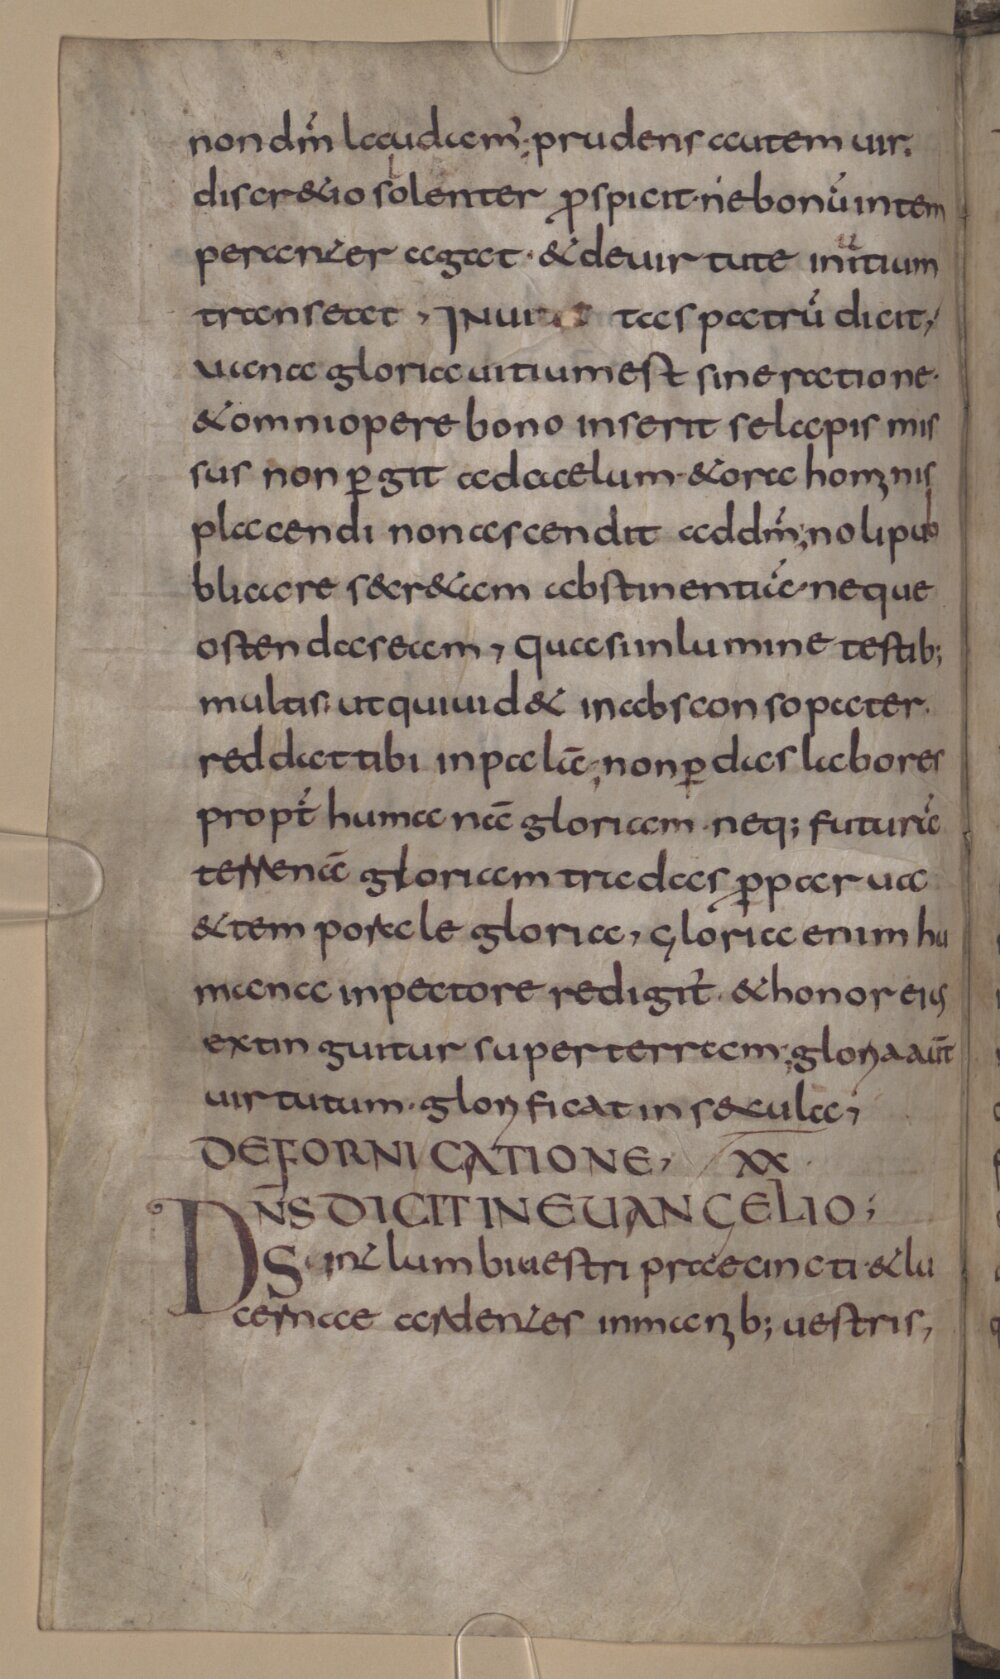 non dm̄ laudam̄; prudens autem uir.
discr&io sollenter ꝓspicit· ne bonū intem
peranter agat · &deuirtute in uitium
transeat, IN uita tas patrū dicit,
uana gloria uitium est sine ratione·
&omni opere bono inserit se lapis mis
sus non ꝑgit ad caelum · &ora hominis
placendi non ascendit ad dm̄; noli pub
bliacre s&cr&am abstinentiā· neque
ostendas eam, Quasi in lumine testib;
multis· ut qui uid& in absconso pater.
reddat tibi in palā; non ꝑdas labores
propt̄ humanā gloriam · neq; futurā
terrenā gloriam tradas ꝓ parua
&temporale gloria, Gloria enim hu
mana in pectore redigit̄ · &honor eius
extinguitur super terram; gloria aut̄
uirtutum · glorificat in saecula,
DE FORNICATIONE, XX
DN̄S DICIT IN EUANGELIO;
Sint lumbi uestri praecincti· &lu
cernae ardentes in manib; uestris,